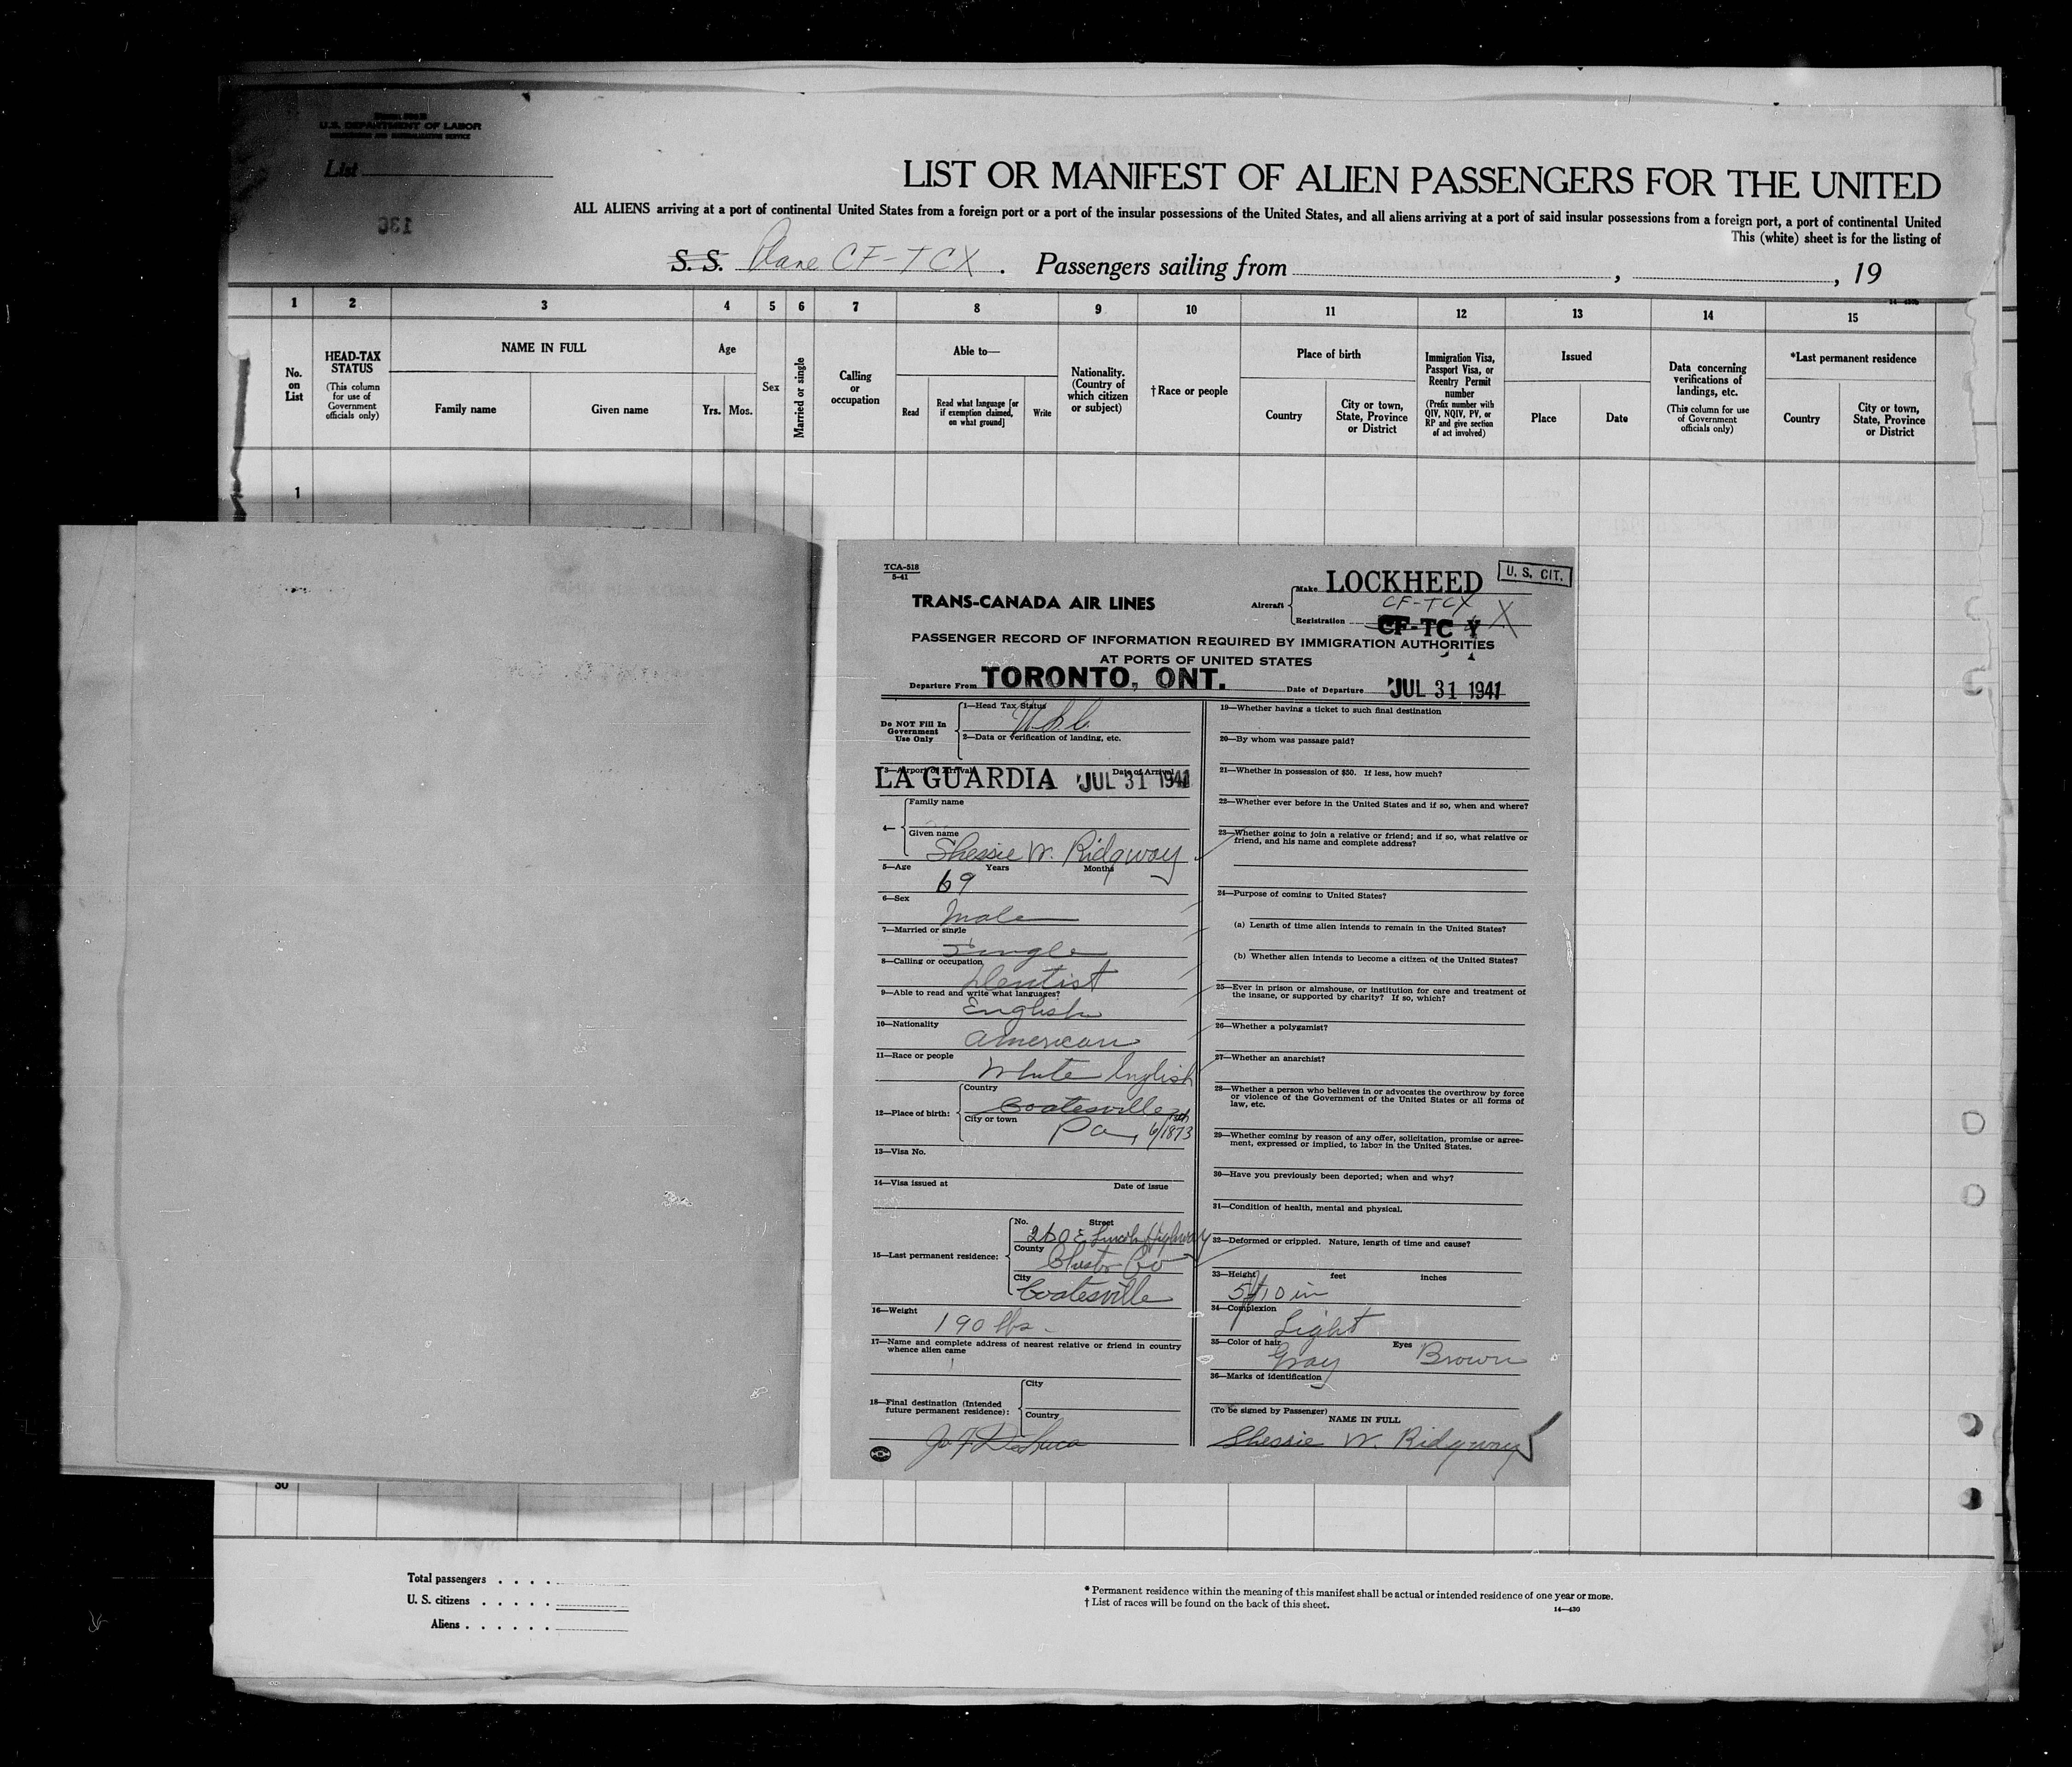 U.S. DEPARTMENT OF LABOR
IMMIGRATION AND NATURALIZATION SERVICE
List
136
LIST OR MANIFEST OF ALIEN PASSENGERS FOR THE UNITED
ALL ALIENS arriving at a port of continental United States from a foreign port or a port of the insular possessions of the United States, and all aliens arriving at a port of said insular possessions from a foreign port, a port of continental United
This (white) sheet is for the listing of
S. S. Plane CF-TCX. Passengers sailing from , , 19
1 2 3 4 5 6 7 8 9 10 11 12 13 14 15
No. on List
HEAD-TAX STATUS
(This column for use of Government officials only)
NAME IN FULL
Family name
Given name
Age
Yrs. Mos.
Sex
Married or single
Calling or occupation
Able to—
Read
Read what language [or if exemption claimed, on what ground]
Write
Nationality. (Country of which citizen or subject)
†Race or people
Place of birth
Country
City or town, State, Province or District
Immigration Visa, Passport Visa, or Reentry Permit number
(Prefix number with QIV, NQIV, PV, or RP and give section of act involved)
Issued
Place
Date
Data concerning verifications of landings, etc.
(This column for use of Government officials only)
*Last permanent residence
Country
City or town, State, Province or District
1
TCA-518
5-41
TRANS-CANADA AIR LINES
Aircraft
Make LOCKHEED
U. S. CIT.
CF-TCX
Registration CF-TC Y X
PASSENGER RECORD OF INFORMATION REQUIRED BY IMMIGRATION AUTHORITIES
AT PORTS OF UNITED STATES
Departure From TORONTO, ONT. Date of Departure JUL 31 1941
Do NOT Fill In Government Use Only
1—Head Tax Status
2—Data or verification of landing, etc.
3—Airport of Arrival Date of Arrival
LA GUARDIA JUL 31 1941
4—
Family name
Given name
Shessie W. Ridgway
5—Age Years Months
69
6—Sex
Male
7—Married or single
Single
8—Calling or occupation
Dentist
9—Able to read and write what languages?
English
10—Nationality
American
11—Race or people
White English
12—Place of birth:
Country
Coatesville
City or town
Pa, 6/13th 1873
13—Visa No.
14—Visa issued at Date of issue
15—Last permanent residence:
No. Street
260 E Lincoln Highway
County
Chester Co
City
Coatesville
16—Weight
190 lbs.
17—Name and complete address of nearest relative or friend in country
whence alien came
18—Final destination (Intended
future permanent residence):
City
Country
19—Whether having a ticket to such final destination
20—By whom was passage paid?
21—Whether in possession of $50. If less, how much?
22—Whether ever before in the United States and if so, when and where?
23—Whether going to join a relative or friend; and if so, what relative or
friend, and his name and complete address?
24—Purpose of coming to United States?
(a) Length of time alien intends to remain in the United States?
(b) Whether alien intends to become a citizen of the United States?
25—Ever in prison or almshouse, or institution for care and treatment of
the insane, or supported by charity? If so, which?
26—Whether a polygamist?
27—Whether an anarchist?
28—Whether a person who believes in or advocates the overthrow by force
or violence of the Government of the United States or all forms of
law, etc.
29—Whether coming by reason of any offer, solicitation, promise or agree-
ment, expressed or implied, to labor in the United States.
30—Have you previously been deported; when and why?
31—Condition of health, mental and physical.
32—Deformed or crippled. Nature, length of time and cause?
33—Height feet inches
5ft 10 in
34—Complexion
Light
35—Color of hair Eyes
Gray Brown
36—Marks of identification
(To be signed by Passenger)
NAME IN FULL
Shessie W. Ridgway
30
Total passengers . . . .
U. S. citizens . . . . .
Aliens . . . . . .
* Permanent residence within the meaning of this manifest shall be actual or intended residence of one year or more.
† List of races will be found on the back of this sheet.
14—430